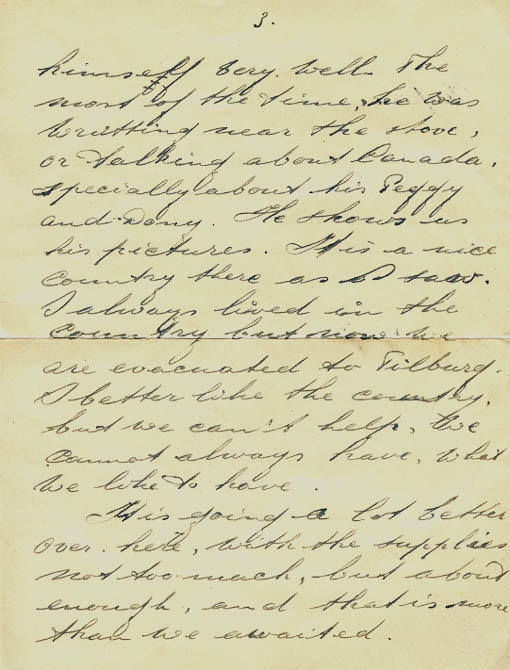 3.
himself very well. The
most of the time, he was
writting near the stove,
or talking about Canada,
specially about his Peggy
and Deny. He shows us
his pictures. It is a nice
country there as I saw.
I always lived in the
country but now we
are evacuated to Tilburg.
I better like the country,
but we can't help, we
cannot always have, what
we like to have.
It is going a lot better
over here, with the supplies
not too much, but about
enough, and that is more
than we awaited.